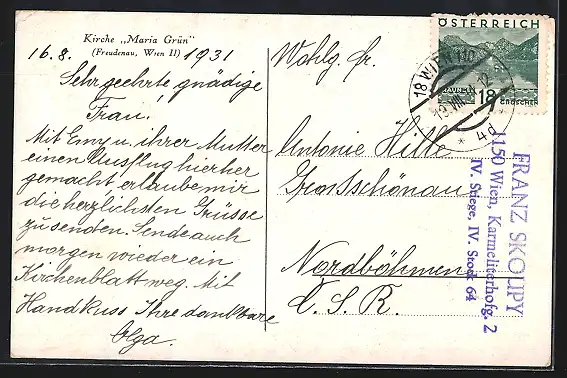 Kirche „Maria Grün"
(Freudenau, Wien II)
16.8. 1931
Sehr geehrte gnädige
Frau!
Mit Emy u. ihrer Mutter
einen Ausflug hierher
gemacht erlaube mir
die herzlichsten Grüsse
zu senden. Sende auch
morgen wieder ein
Kirchenblatt weg. Mit
Handkuss Ihre dankbare
Olga.
ÖSTERREICH
18
GROSCHEN
18 WIEN
Wohlg. Fr.
Antonie Hille
Grosschönau
Nordböhmen
Č.S.R.
FRANZ SKOUPY
1150 Wien, Karmeliterhofg. 2
IV. Stiege, IV. Stock 64